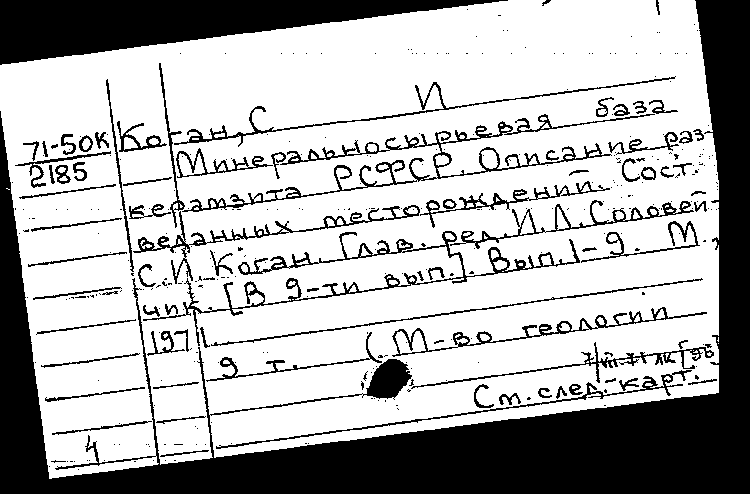 71-50К
2185
Коган, С И
Минеральносырьевая база
керамзита РСФСР. Описание раз-
веданных месторождений. Сост.
С.И. Коган. Глав. ред. И.Л. Соловей-
чик. [В 9-ти вып.]. Вып. 1-9. М.,
1971.
9 т. (М-во геологии
См. след. карт.
4